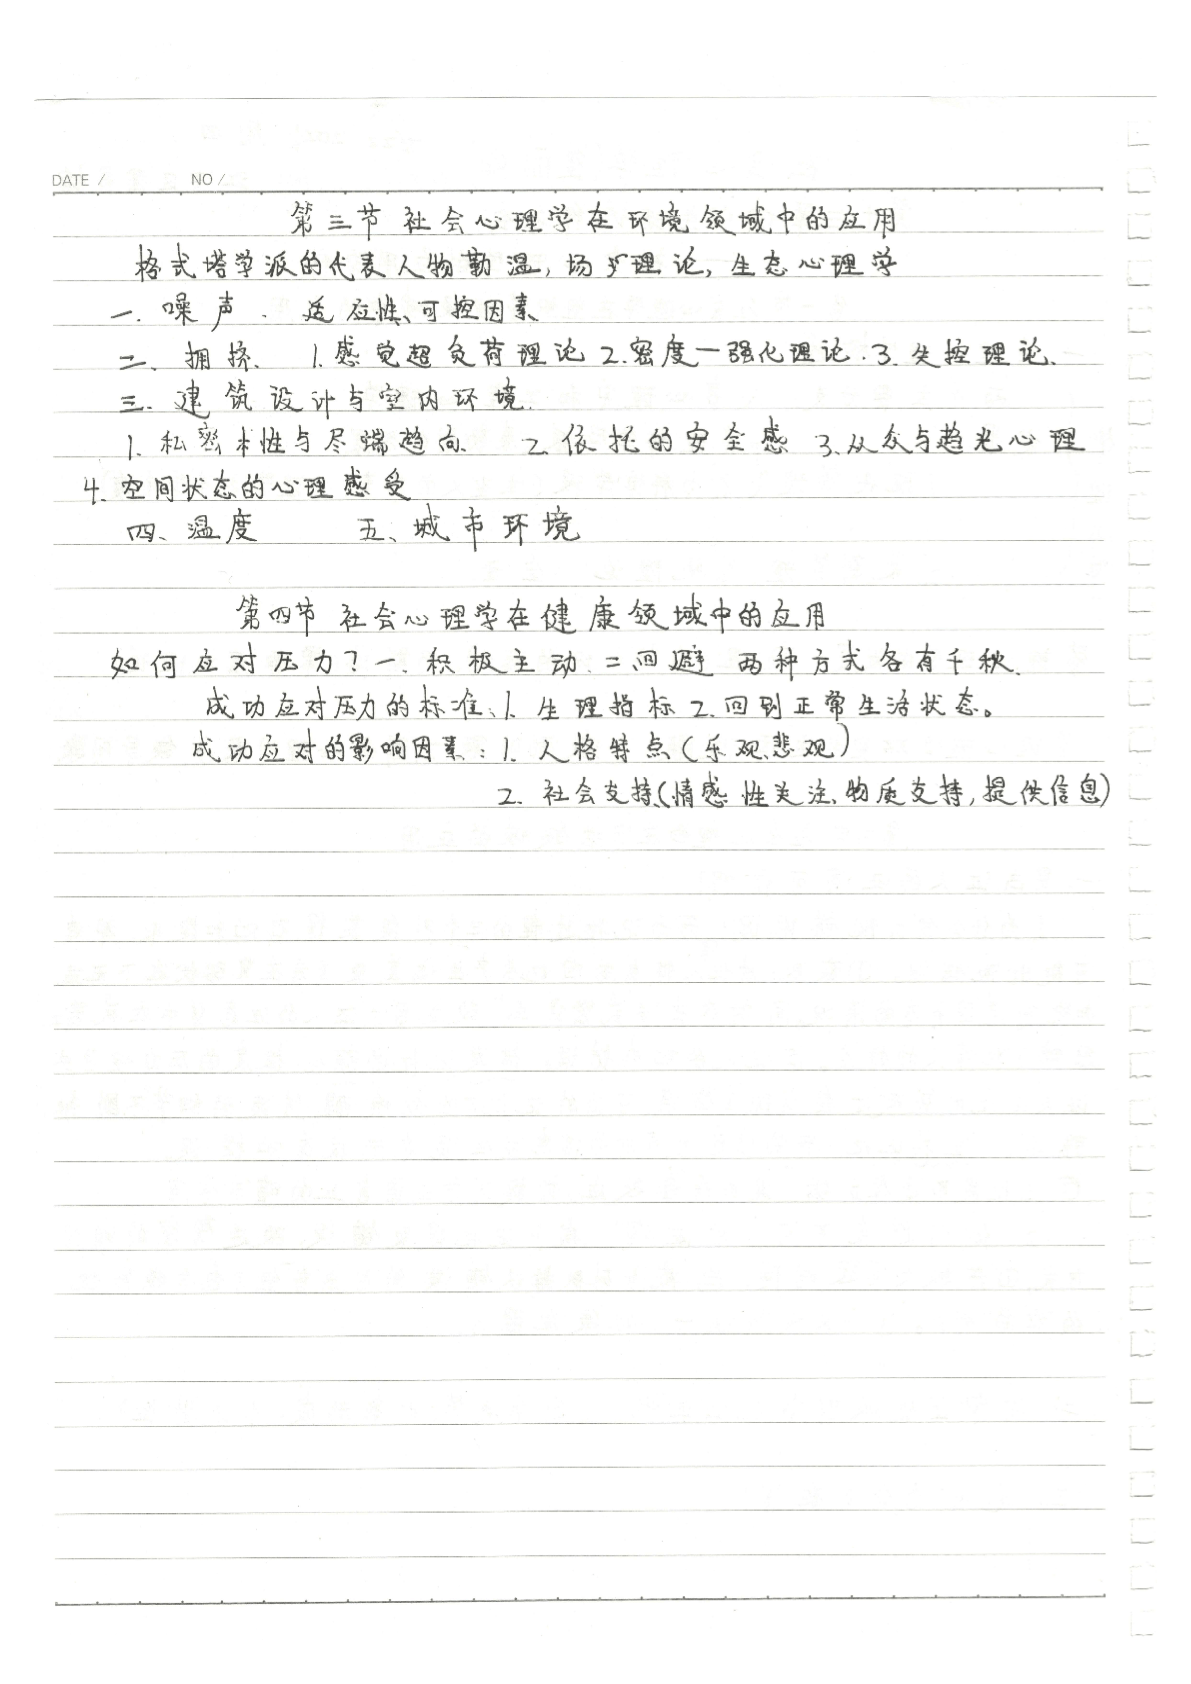 DATE / NO /
第三节 社会心理学在环境领域中的应用
格式塔学派的代表人物勒温,场理论,生态心理学
一.噪声. 适应性、可控因素
二、拥挤. 1.感觉超负荷理论 2.密度一强化理论.3.失控理论.
三.建筑设计与室内环境.
1.私密性与尽端趋向. 2.依托的安全感 3.从众与趋光心理
4.空间状态的心理感受
四、温度 五、城市环境
第四节 社会心理学在健康领域中的应用
如何应对压力?一.积极主动.二.回避 两种方式各有千秋.
成功应对压力的标准、1.生理指标 2.回到正常生活状态。
成功应对的影响因素:1.人格特点(乐观、悲观)
2.社会支持(情感性关注、物质支持,提供信息)